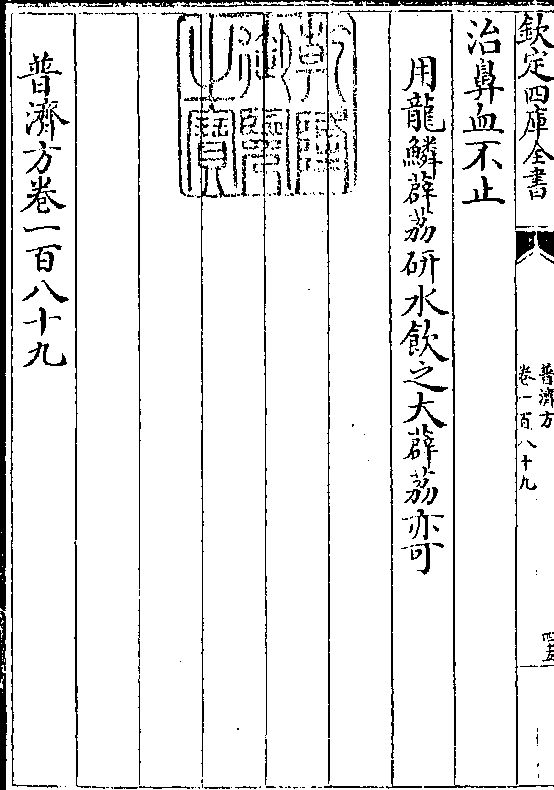 欽定四庫全書
普濟方
卷一百八十九
治鼻血不止
用龍鱗薜荔研水飲之大薜荔亦可
乾隆
御覽
之寶
普濟方卷一百八十九